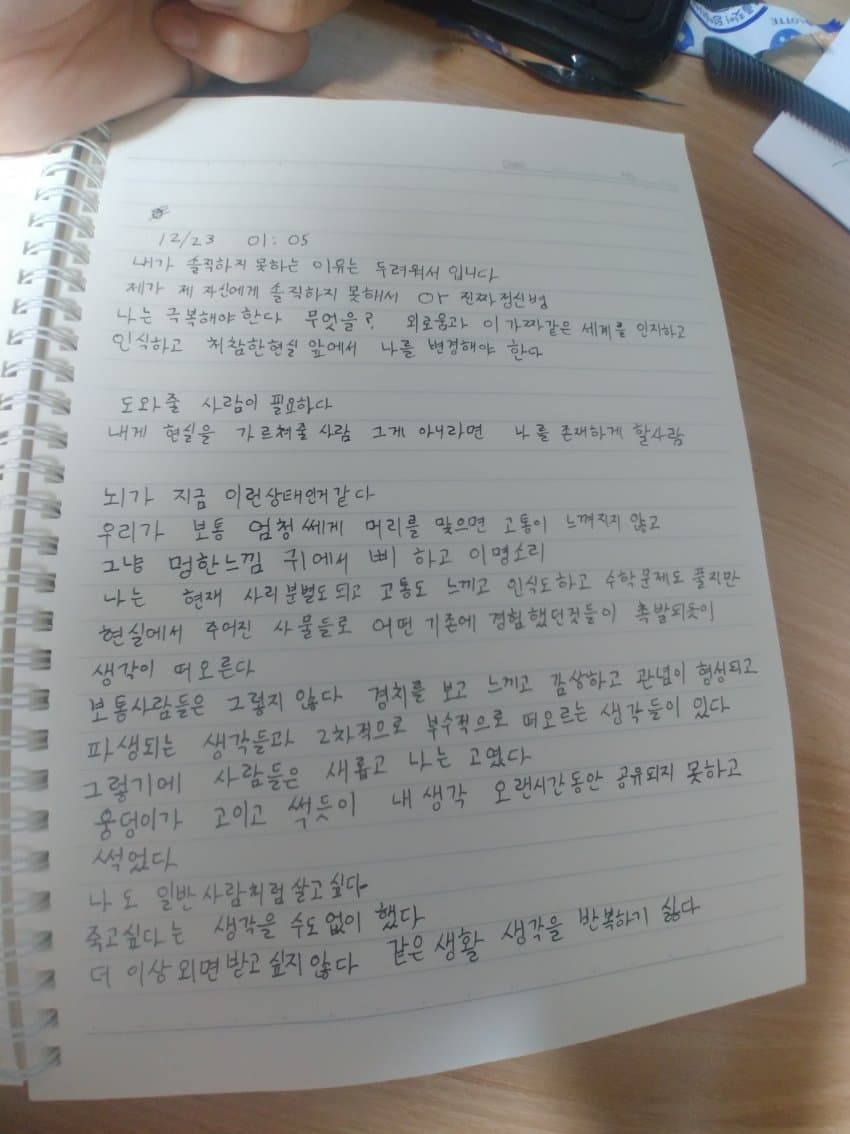 12/23 01:05
내가 솔직하지 못하는 이유는 두려워서 입니다
제가 제 자신에게 솔직하지 못해서 or 진짜정신병
나는 극복해야한다 무엇을? 외로움과 이 가짜같은 세계를 인지하고
인식하고 처참한현실 앞에서 나를 변경해야 한다
도와줄 사람이 필요하다
내게 현실을 가르쳐줄 사람 그게 아니라면 나를 존재하게 할사람
뇌가 지금 이런상태인거같다
우리가 보통 엄청쎄게 머리를 맞으면 고통이 느껴지지 않고
그냥 멍한느낌 귀에서 삐 하고 이명소리
나는 현재 사리분별도되고 고통도 느끼고 인식도하고 수학문제도 풀지만
현실에서 주어진 사물들로 어떤 기존에 경험했던것들이 촉발되듯이
생각이 떠오른다
보통사람들은 그렇지 않다 경치를 보고 느끼고 감상하고 관념이 형성되고
파생되는 생각들과 2차적으로 부수적으로 떠오르는 생각들이 있다
그렇기에 사람들은 새롭고 나는 고였다
웅덩이가 고이고 썩듯이 내생각 오랜시간동안 공유되지 못하고
썩었다
나도 일반사람처럼 살고싶다
죽고싶다는 생각을 수도없이 했다
더 이상 외면받고 싶지않다 같은생활 생각을 반복하기 싫다
LOTTE